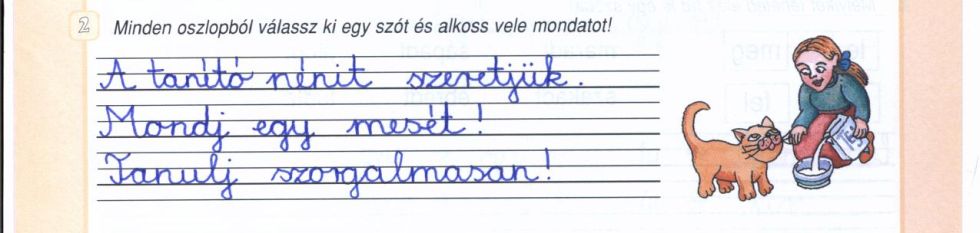 2 Minden oszlopból válassz ki egy szót és alkoss vele mondatot!
A tanító nénit szeretjük.
Mondj egy mesét!
Tanulj szorgalmasan!